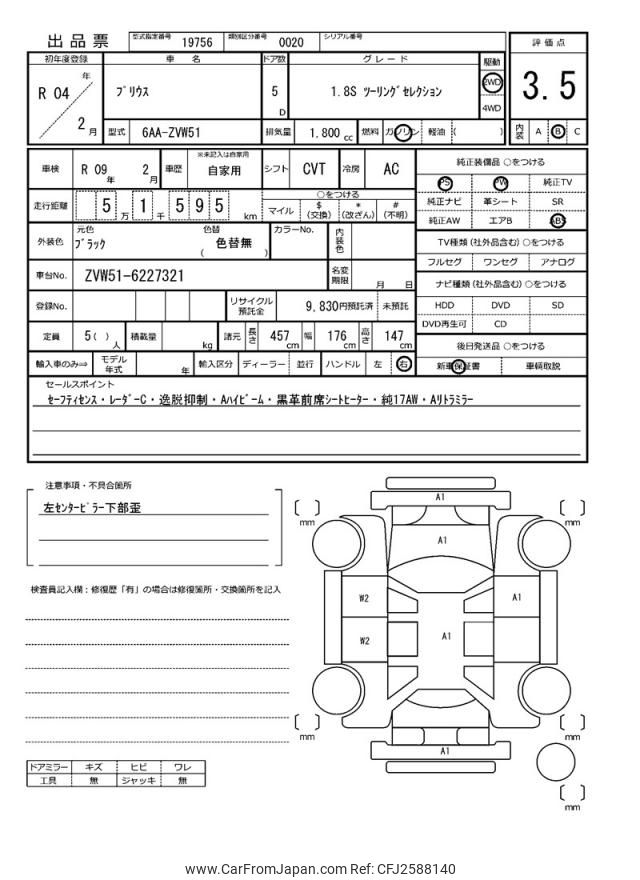 出品票
型式指定番号 19756 類別区分番号 0020 シリアル番号
評価点
3.5
内装 A B C
初年度登録 車名 ドア数 グレード 駆動
R 04 年 2 月
プリウス 5 D 1.8S ツーリングセレクション 2WD
4WD
型式 6AA-ZVW51 排気量 1,800 cc 燃料 ガソリン 軽油 ( )
車検 R 09 年 2 月 車歴 ※未記入は自家用 自家用 シフト CVT 冷房 AC
走行距離 5 万 1 千 5 9 5 km
○をつける
マイル $ (交換) * (改ざん) # (不明)
外装色 元色 ブラック 色替 色替無 ( ) カラーNo. 内装色
車台No. ZVW51-6227321 名変期限 月 日
登録No. リサイクル預託金 9,830円預託済 未預託
定員 5 ( ) 人 積載量 kg 諸元 長さ 457 cm 幅 176 cm 高さ 147 cm
輸入車のみ⇒ モデル年式 年 輸入区分 ディーラー 並行 ハンドル 左 右
純正装備品 ○をつける
PS PW 純正TV
純正ナビ 革シート SR
純正AW エアB ABS
TV種類 (社外品含む) ○をつける
フルセグ ワンセグ アナログ
ナビ種類 (社外品含む) ○をつける
HDD DVD SD
DVD再生可 CD
後日発送品 ○をつける
新車保証書 車輌取説
セールスポイント
セーフティセンス・レーダーC・逸脱抑制・Aハイビーム・黒革前席シートヒーター・純17AW・Aリトラミラー
注意事項・不具合箇所
左センターピラー下部歪
検査員記入欄:修復歴「有」の場合は修復箇所・交換箇所を記入
ドアミラー キズ ヒビ ワレ
工具 無 ジャッキ 無
A1
mm
mm
A1
W2
A1
W2
A1
mm
mm
A1
mm
www.CarFromJapan.com Ref: CFJ2588140